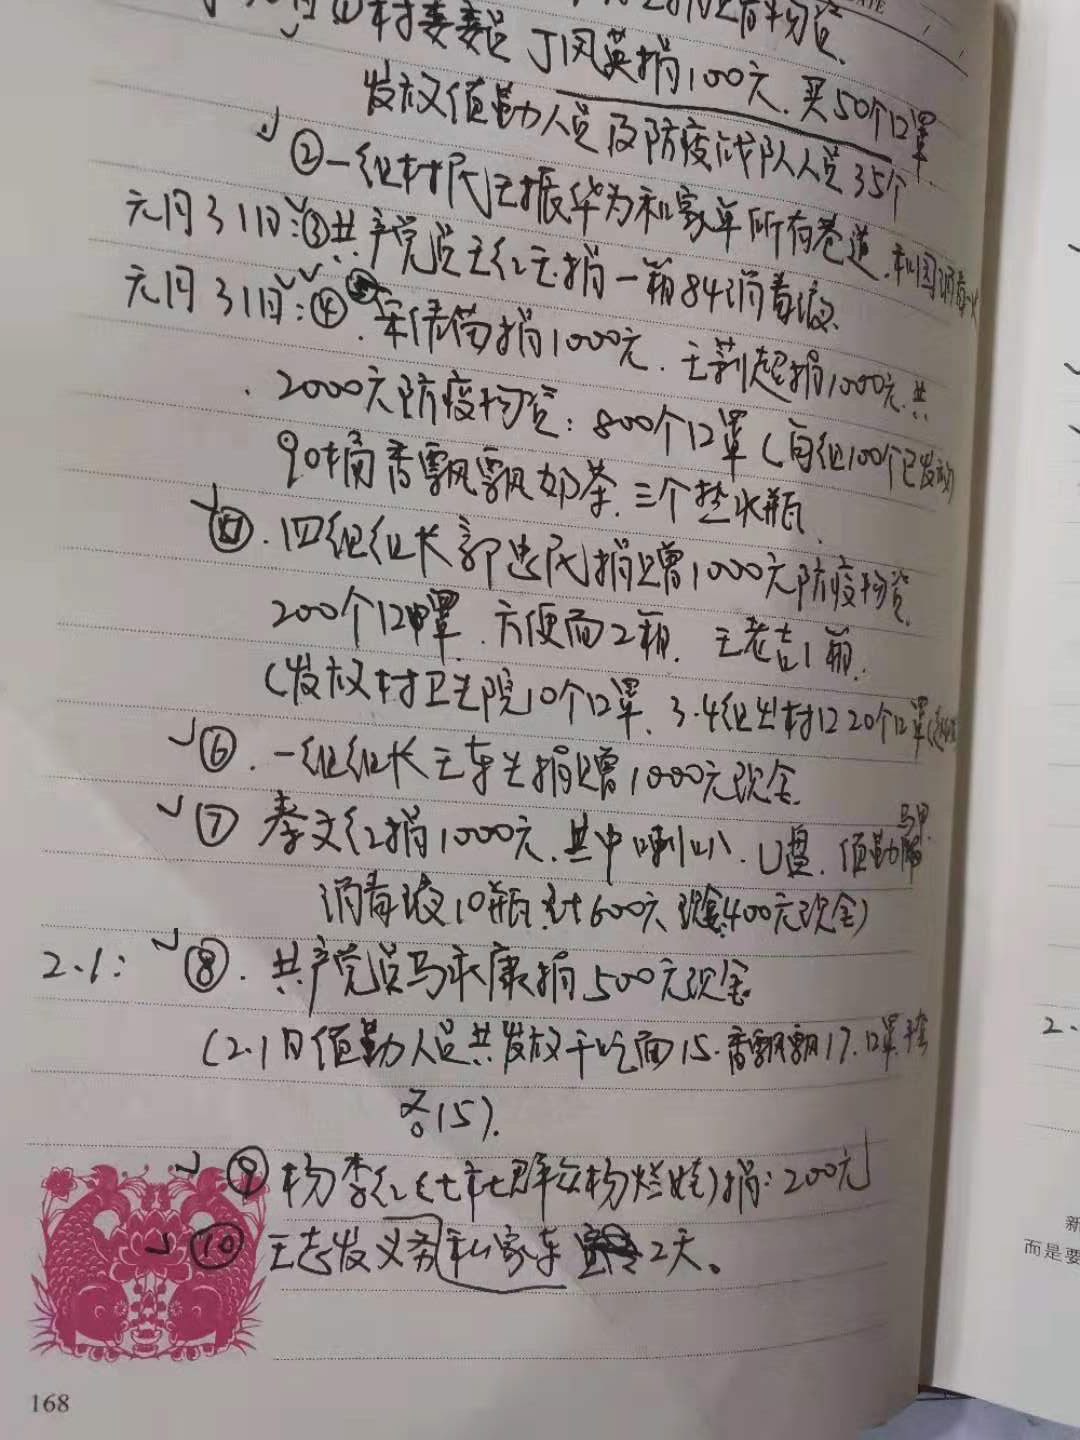 ①村委委员丁风英捐100元.买50个口罩
发放值勤人员及防疫战队人员35个
②一组村民王振华为私家车所有巷道.
元月31日:③共产党员王红玉捐一箱84消毒液.
元月31日:④.宋伟苗捐1000元.王莉超捐1000元.共
2000元防疫物资:800个口罩(每组100个已发放)
90桶香飘飘奶茶.三个垫水瓶.
四组组长郭忠民捐赠1000元防疫物资.
200个口罩.方便面2箱.王老吉1箱.
(发放村卫生院10个口罩.3.4组出村口20个口罩
⑥.一组组长王车生捐赠1000元现金.
⑦秦文红捐1000元.其中喇叭.U盘.值勤马甲
消毒液10瓶.计600元 400元现金)
2.1:⑧.共产党员马永康捐500元现金
(2.1日值勤人员共发放干吃面15.香飘飘17.口罩手套
各15).
⑨杨李红(七社群众杨烂娃)捐:200元
⑩王志发义务私家车2天。
168
新
而是要
2.